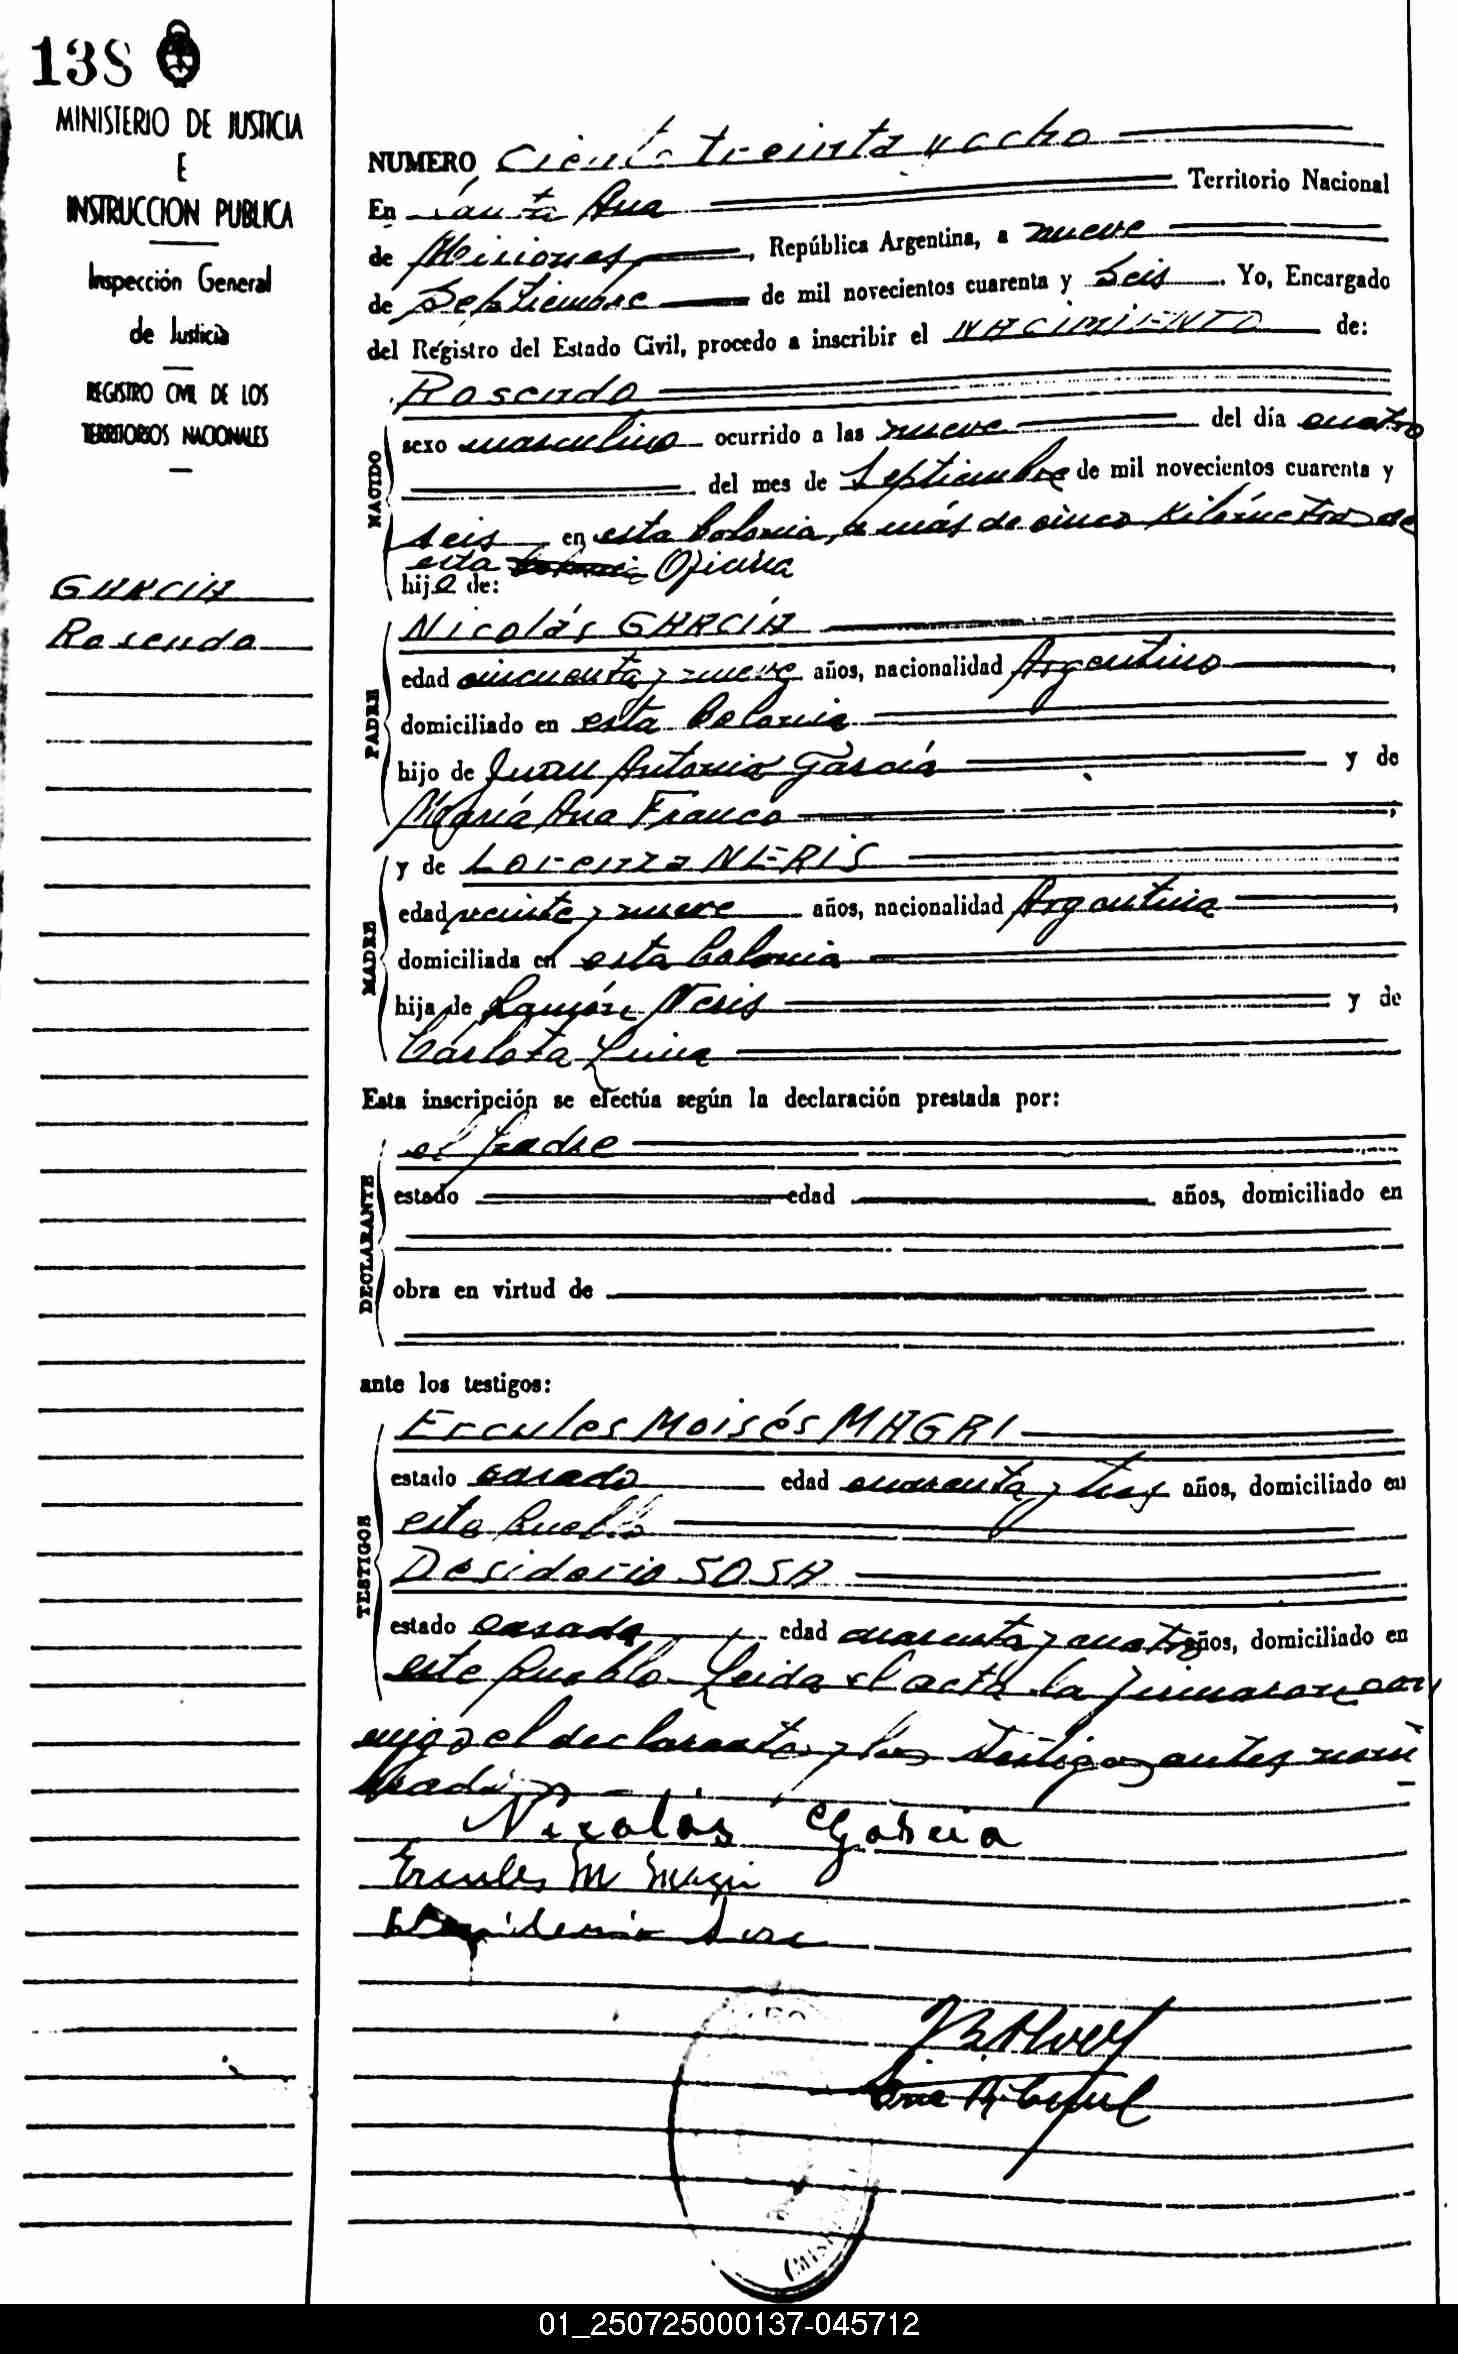 138
MINISTERIO DE JUSTICIA
E
INSTRUCCION PUBLICA
Inspección General
de Justicia
REGISTRO CIVIL DE LOS
TERRITORIOS NACIONALES
GARCIA
Rosendo
NUMERO Ciento treinta y ocho
En Santa Ana Territorio Nacional
de Misiones, República Argentina, a nueve
de Septiembre de mil novecientos cuarenta y Seis. Yo, Encargado
del Registro del Estado Civil, procedo a inscribir el NACIMIENTO de:
NACIDO
Rosendo
sexo masculino ocurrido a las nueve del día cuatro
del mes de Septiembre de mil novecientos cuarenta y
seis en esta Colonia, a más de cinco Kilómetros de
esta Oficina
hijo de:
PADRE
Nicolás GARCIA
edad cincuenta y nueve años, nacionalidad Argentino
domiciliado en esta Colonia
hijo de Juan Antonio García y de
María Ana Franco
MADRE
y de Lorenza NERIS
edad veinte y nueve años, nacionalidad Argentina
domiciliada en esta Colonia
hija de Ramón Neris y de
Carlota Luna
Esta inscripción se efectúa según la declaración prestada por:
DECLARANTE
el padre
estado edad años, domiciliado en
obra en virtud de
ante los testigos:
TESTIGOS
Ercules Moisés MAGRI
estado casado edad cuarenta y tres años, domiciliado en
este Pueblo
Desiderio SOSA
estado casado edad cuarenta y cuatro años, domiciliado en
este Pueblo Leida el acta la firmaron con
migo el declarante y los testigos antes nom
brados
Nicolás Garcia
Ercules M Magri
01_250725000137-045712